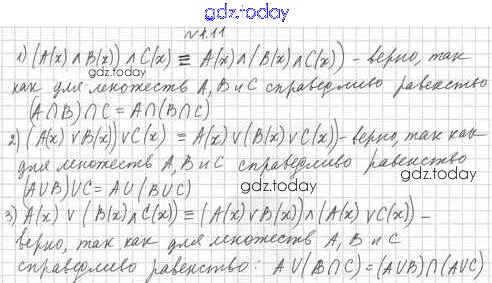 gdz.today
№1.11
1) (A(x) ∧ B(x)) ∧ C(x) ≡ A(x) ∧ (B(x) ∧ C(x)) – верно, так
gdz.today
gdz.today
как для множеств A, B и C справедливо равенство
(A∩B)∩C = A∩(B∩C)
2) (A(x) ∨ B(x)) ∨ C(x) ≡ A(x) ∨ (B(x) ∨ C(x)) – верно, так как
для множеств A, B и C справедливо равенство
gdz.today
(A∪B)∪C = A∪(B∪C)
gdz.today
3) A(x) ∨ (B(x) ∧ C(x)) ≡ (A(x) ∨ B(x)) ∧ (A(x) ∨ C(x)) –
верно, так как для множеств A, B и C
gdz.today
справедливо равенство: A∪(B∩C) = (A∪B)∩(A∪C)